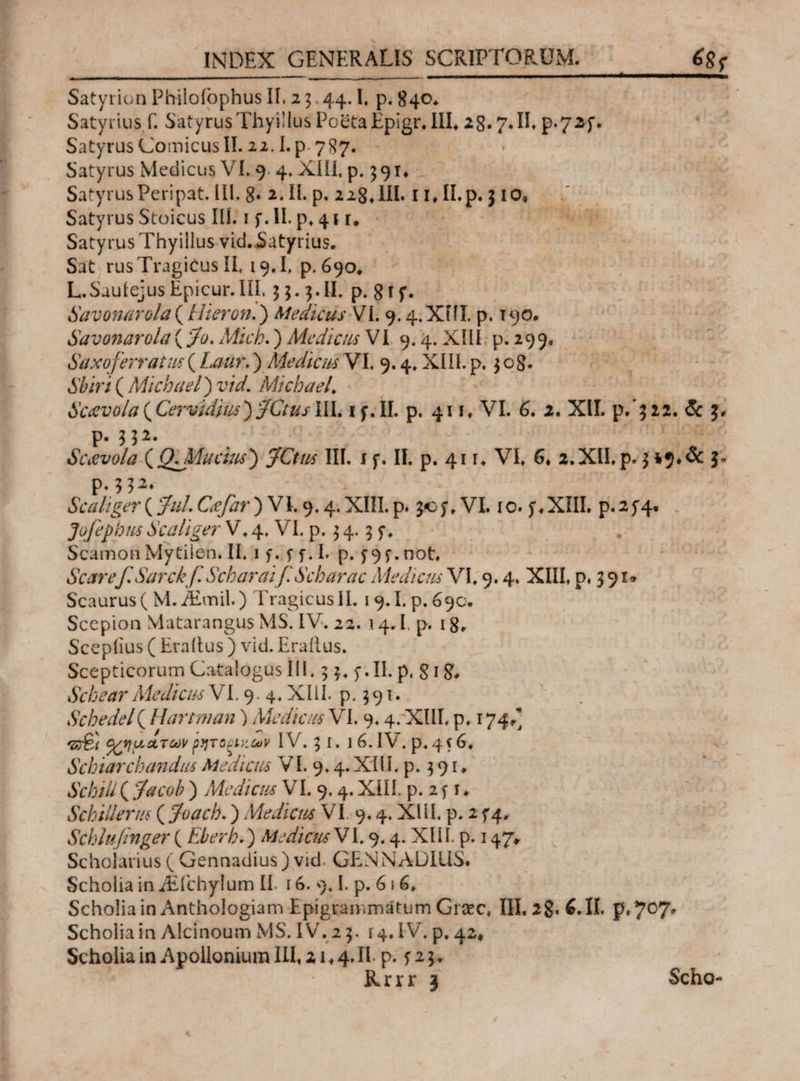 INDEX GENERALIS SCRIPTORUM. 685
Satyrion Philosophus II. 23. 44. I. p. 840.
Satyrius s. Satyrus Thyillus Poëta Epigr. III. 28. 7. II. p. 725.
Satyrus Comicus II. 22. I. p. 787.
Satyrus Medicus VI. 9. 4. XIII. p. 391.
Satyrus Peripat. III. 8. 2. II. p. 228. III. 11. II. p. 310.
Satyrus Stoicus III. 15. II. p. 411.
Satyrus Thyillus vid. Satyrius.
Sat rus Tragicus II. 19. I. p. 690.
L. Saufejus Epicur. III. 33. 3. II. p. 815.
Savonarola (Hieron.) Medicus VI. 9. 4. XIII. p. 190.
Savonarola (Jo. Mich.) Medicus VI 9. 4. XIII p. 299.
Saxoferratus (Laur.) Medicus VI. 9. 4. XIII. p. 308.
Sbiri (Michael) vid. Michael.
Scævola (Cervidius) JCtus III. 15. II. p. 411. VI. 6. 2. XII. p. 322. & 3.
p. 332.
Scævola (Q. Mucius) JCtus III. 15. II. p. 411. VI. 6. 2. XII. p. 319. & 3.
p. 332.
Scaliger (Jul. Cæsar) VI. 9. 4. XIII. p. 305. VI. 10. 5. XIII. p. 254.
Josephus Scaliger V. 4. VI. p. 34. 35.
Scamon Mytilen. II. 15. 55. I. p. 595. not.
Scaref. Sarck f. Scharai f. Scharac Medicus VI. 9. 4. XIII. p. 391.
Scaurus (M. Æmil.) Tragicus II. 19. I. p. 690.
Scepion Matarangus MS. IV. 22. 14. I. p. 18.
Scepsius (Erastus) vid. Erastus.
Scepticorum Catalogus III. 33. 5. II. p. 818.
Schear Medicus VI. 9. 4. XIII. p. 391.
Schedel (Hartman) Medicus VI. 9. 4. XIII. p. 174.
περὶ σχημάτων ῥητορικῶν IV. 31. 16. IV. p. 456.
Schiarchandus Medicus VI. 9. 4. XIII. p. 391.
Schill (Jacob) Medicus VI. 9. 4. XIII. p. 251.
Schillerus (Joach.) Medicus VI. 9. 4. XIII. p. 254.
Schlusinger (Eberh.) Medicus VI. 9. 4. XIII. p. 147.
Scholarius (Gennadius) vid. GENNADIUS.
Scholia in Æschylum II. 16. 9. I. p. 616.
Scholia in Anthologiam Epigrammatum Græc. III. 28. 6. II. p. 707.
Scholia in Alcinoum MS. IV. 23. 14. IV. p. 42.
Scholia in Apollonium III. 21. 4. II. p. 523.
Rrrr 3 Scho-